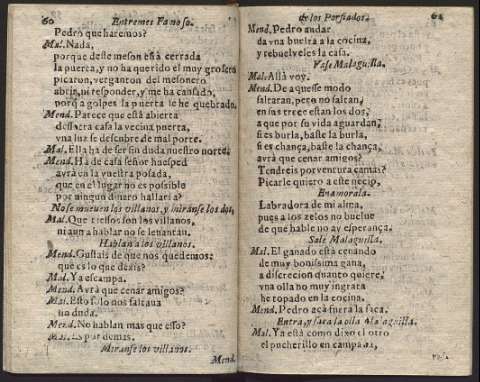 60 Entremes Famoso.
Pedro que haremos?
Mal. Nada,
porque deste meson està cerrada
la puerta, y no ha querido el muy grosero
picaron, verganton del mesonero
abrir, ni responder, y me ha cansado,
porq̃ a golpes la puerta le he quebrado.
Mend. Parece que està abierta
de la vecina puerta,
vna luz se descubre de mal porte.
Mal. Ella ha de ser sin duda nuestro norte.
Mend. Ha de casa señor huesped
avrà en la vuestra posada,
que en el lugar no es possible
por ningun dinero hallarla?
No se mueven los villanos, y miranse los dos,
Mal. Que tiessos son los villanos,
ni aun a hablar no se levantan.
Hablan a los villanos.
Mend. Gustais de que nos quedemos:
què es lo que dezis?
Mal. Ya escampa.
Mend. Avrà que cenar amigos?
Mal. Esto solo nos faltaua
sin duda.
Mend. No hablan mas que esso?
Mal. Es por demàs.
Miranse los villanos.
Mend.
de los Porfiados. 61
Mend. Pedro andar
da vna buelta a la cocina,
y rebuelveles la casa.
Vase Malaguilla.
Mal. Allà voy.
Mend. De aquesse modo
faltaran, pero no faltan,
en sus trece estan los dos,
a que por su vida aguardan?
si es burla, baste la burla,
si es chança, baste la chança,
avrà que cenar amigos?
Tendreis por ventura camas?
Picarle quiero a este necio,
Enamorala.
Labradora de mi alma,
pues a los zelos no buelue
de que hable no ay esperança.
Sale Malaguilla.
Mal. El ganado està cenando
de muy bonissima gana,
a discrecion quanto quiere,
vna olla no muy ingrata
he topado en la cocina.
Mend. Pedro acà fuera la saca.
Entra, y saca la olla Malaguilla.
Mal. Ya està como dixo el otro
el pucherillo en campaña,